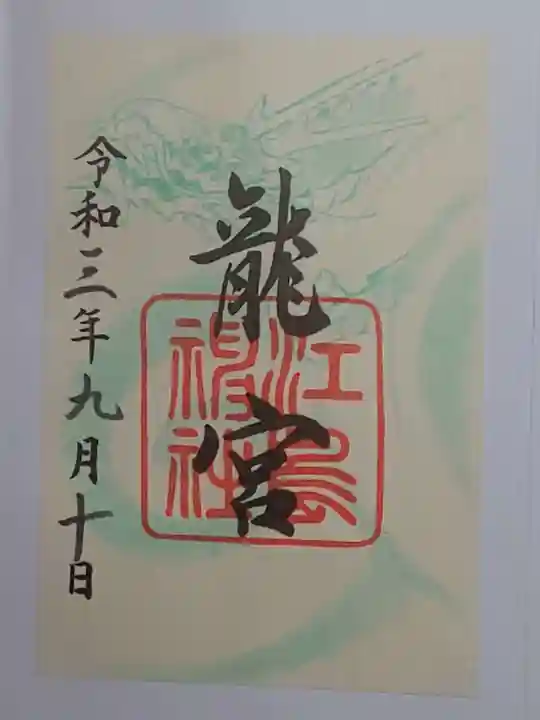 龍宮
江島
神社
令和三年九月十日